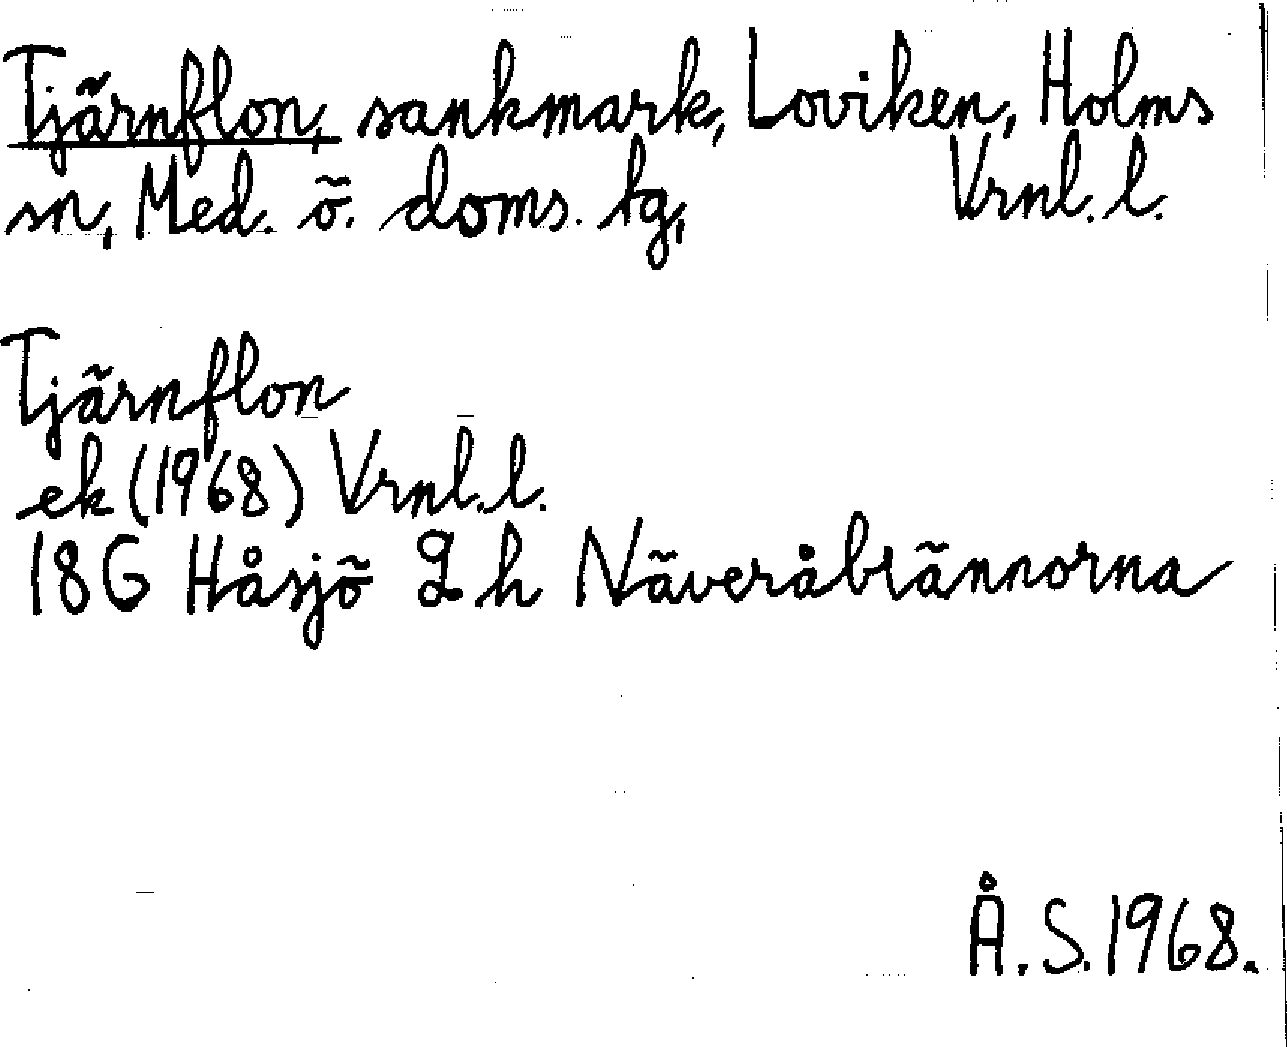 Tjärnflon, sankmark, Loviken, Holms
sn, Med. ö. doms. tg, Vrnl. l.
Tjärnflon
ek (1968) Vrnl. l.
18G Håsjö 2 h Näveråbrännorna
Å. S. 1968.